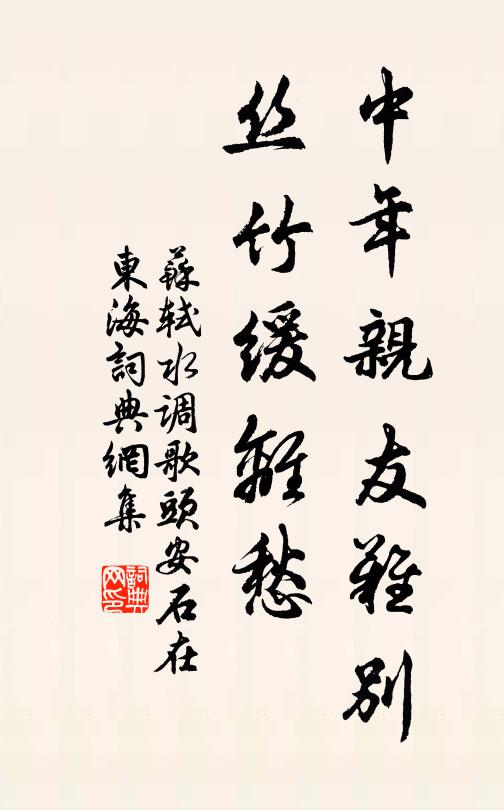 中年親友難别
丝竹缓離愁
蘇轼水调歌頭安石在
東海詞典網集
詞典网印